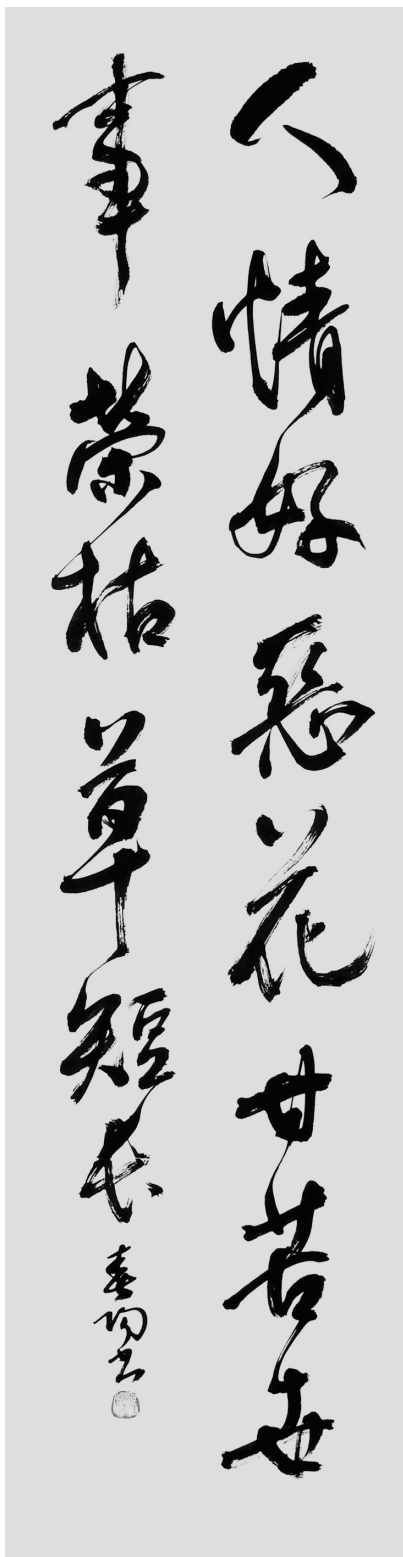 人情好惡花甘苦世
事榮枯草短長
春陽書